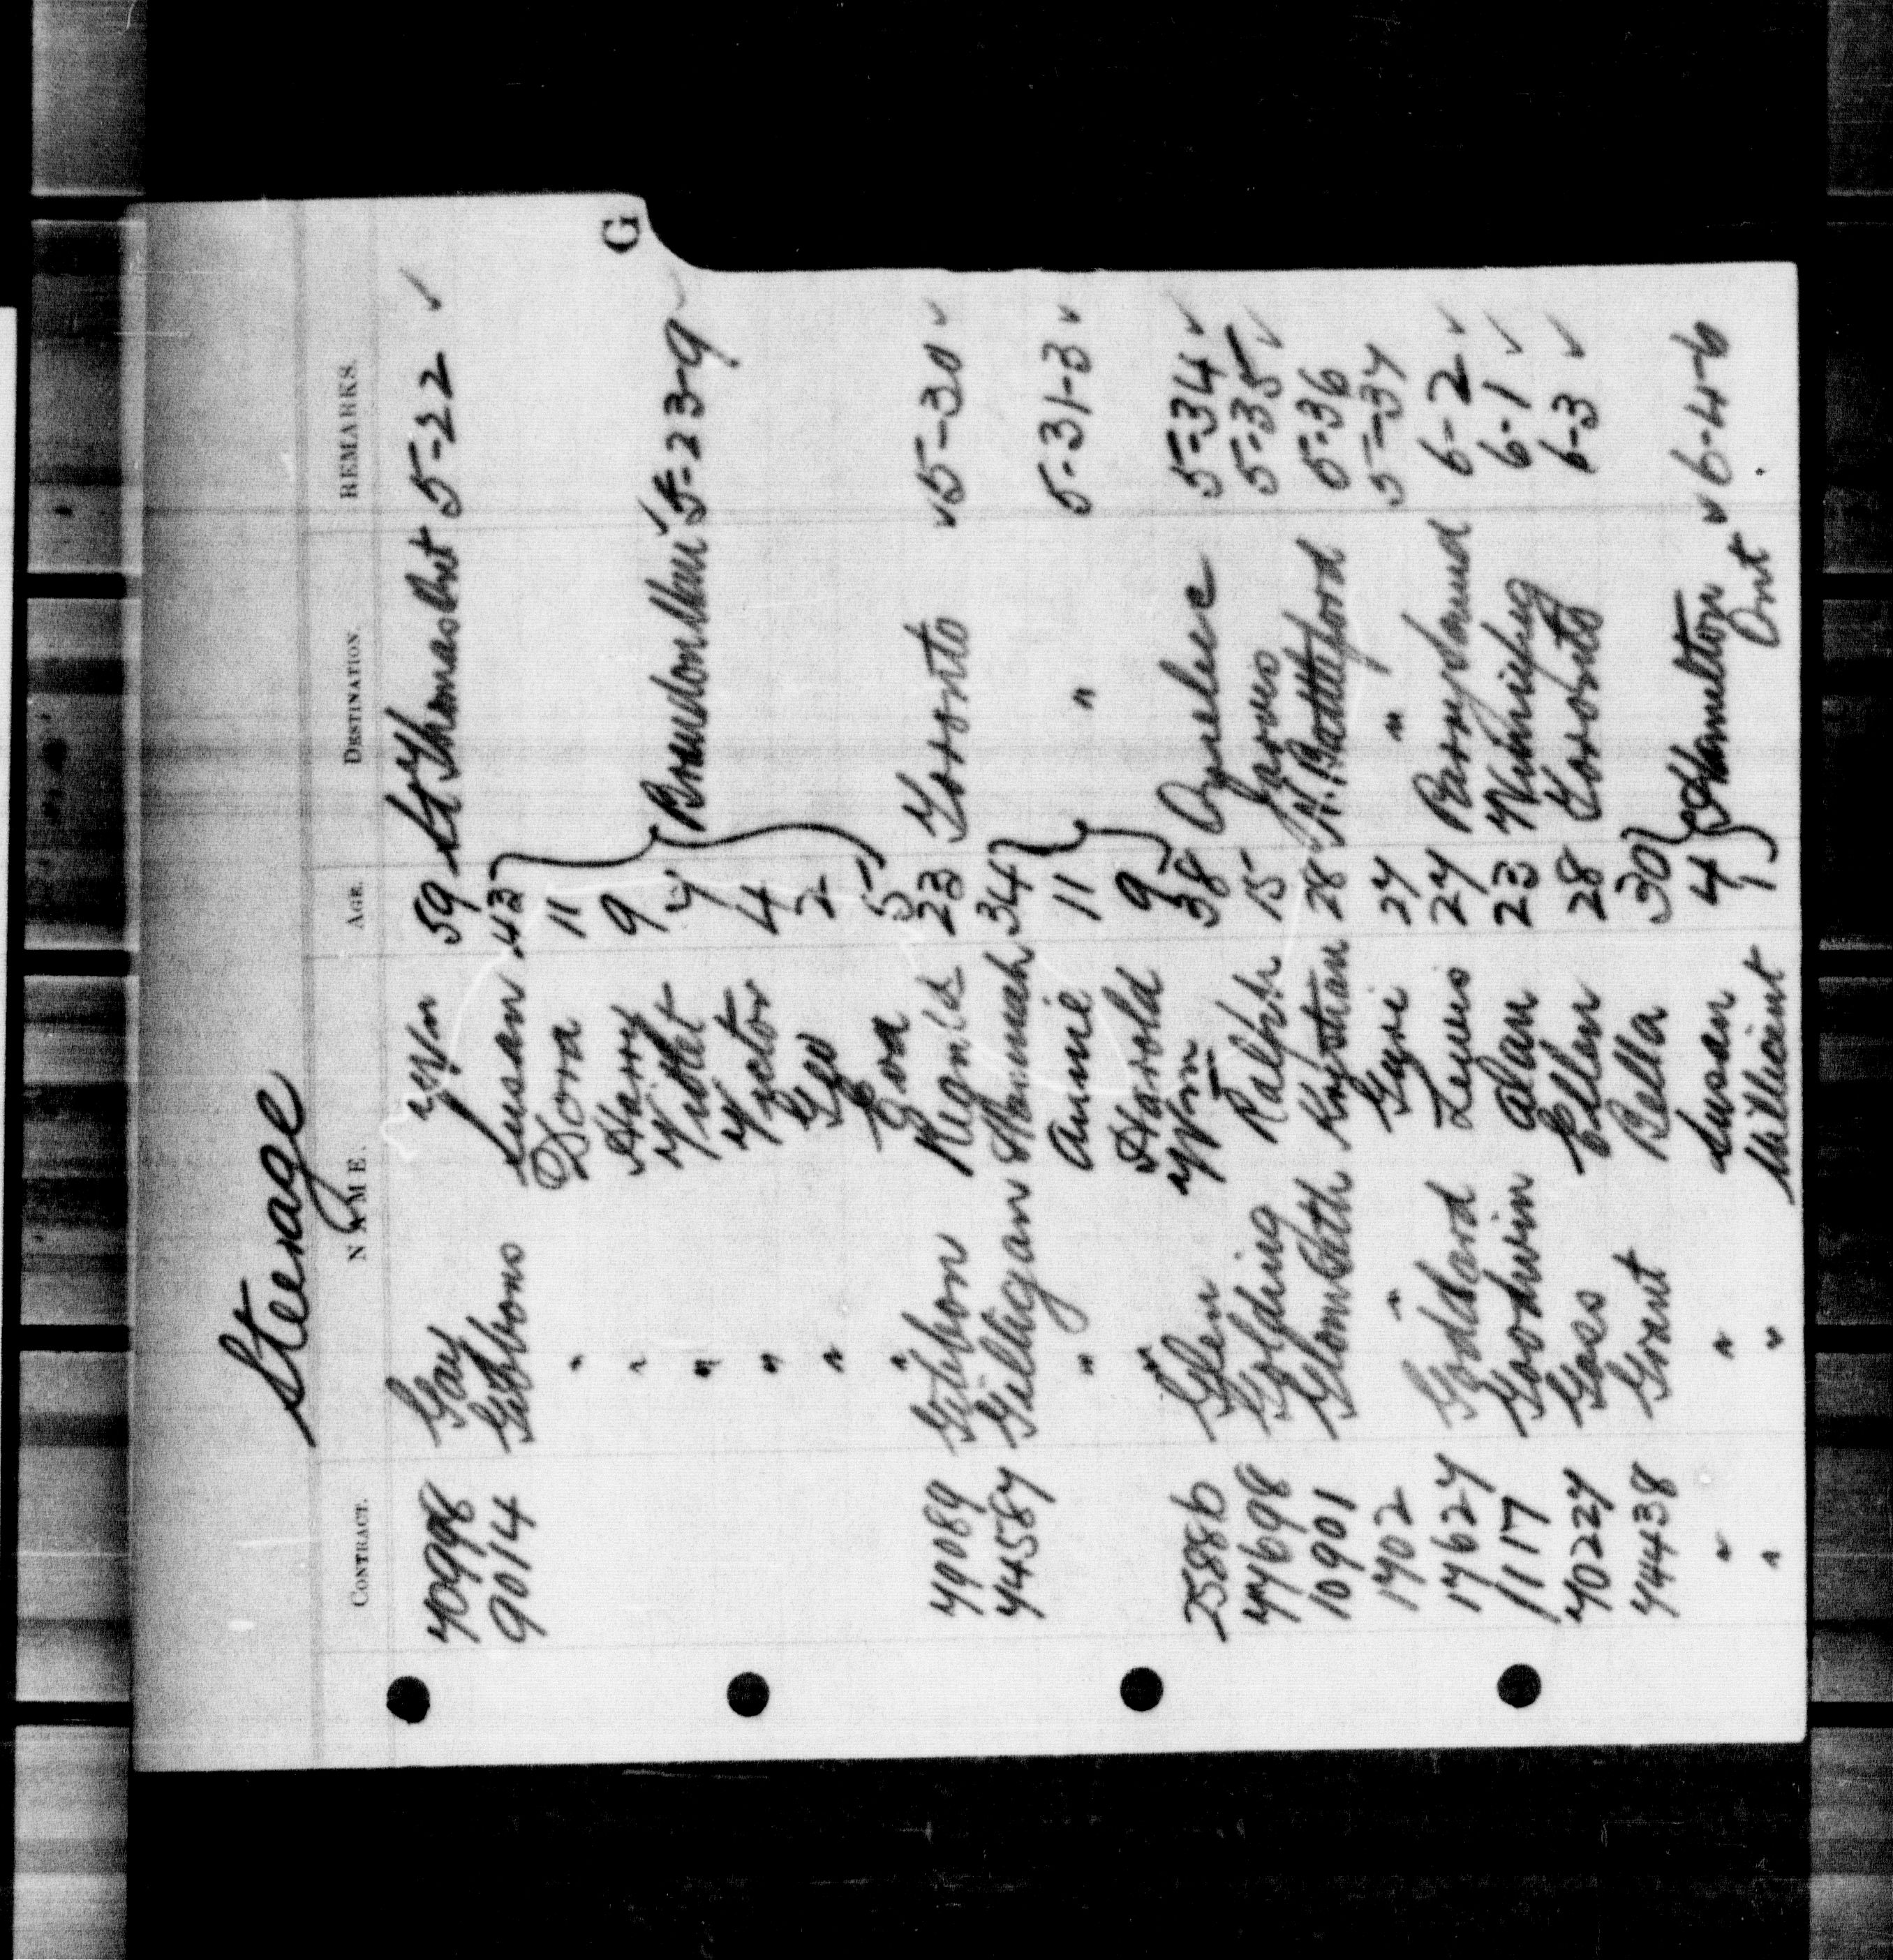 Steerage
G
CONTRACT. NAME. AGE. DESTINATION. REMARKS.
70998 Gay Wm 59 St Thomas Ont 5-22 ✓
9014 Gibbons Susan 43
" Dora 11
" Harry 9
" Violet 7 Brandon Man ✓ 5-23-9 ✓
" Victor 4
" Geo 2
" Eva 5
79089 Gibbon Regnld 23 Toronto ✓ 5-30 ✓
74587 Gilligan Hannah 34
" Annie 11 " 5-31-3 ✓
" Harold 9
25886 Glen Wm 38 5-34 ✓
77698 Golding Ralph 15 Jarvis 5-35 ✓
10901 Kristian 28 N. Battleford 5-36
1702 " Gyri 27 " 5-37
17627 Goddard Lewis 27 Parry Sound 6-2 ✓
1117 Goodwin Alan 23 Winnipeg 6-1 ✓
70227 Goss Ellen 28 Toronto 6-3 ✓
74438 Grant Bella 30
" " Susan 4 Hamilton ✓ 6-4-6
" " Millicent 1 Ont